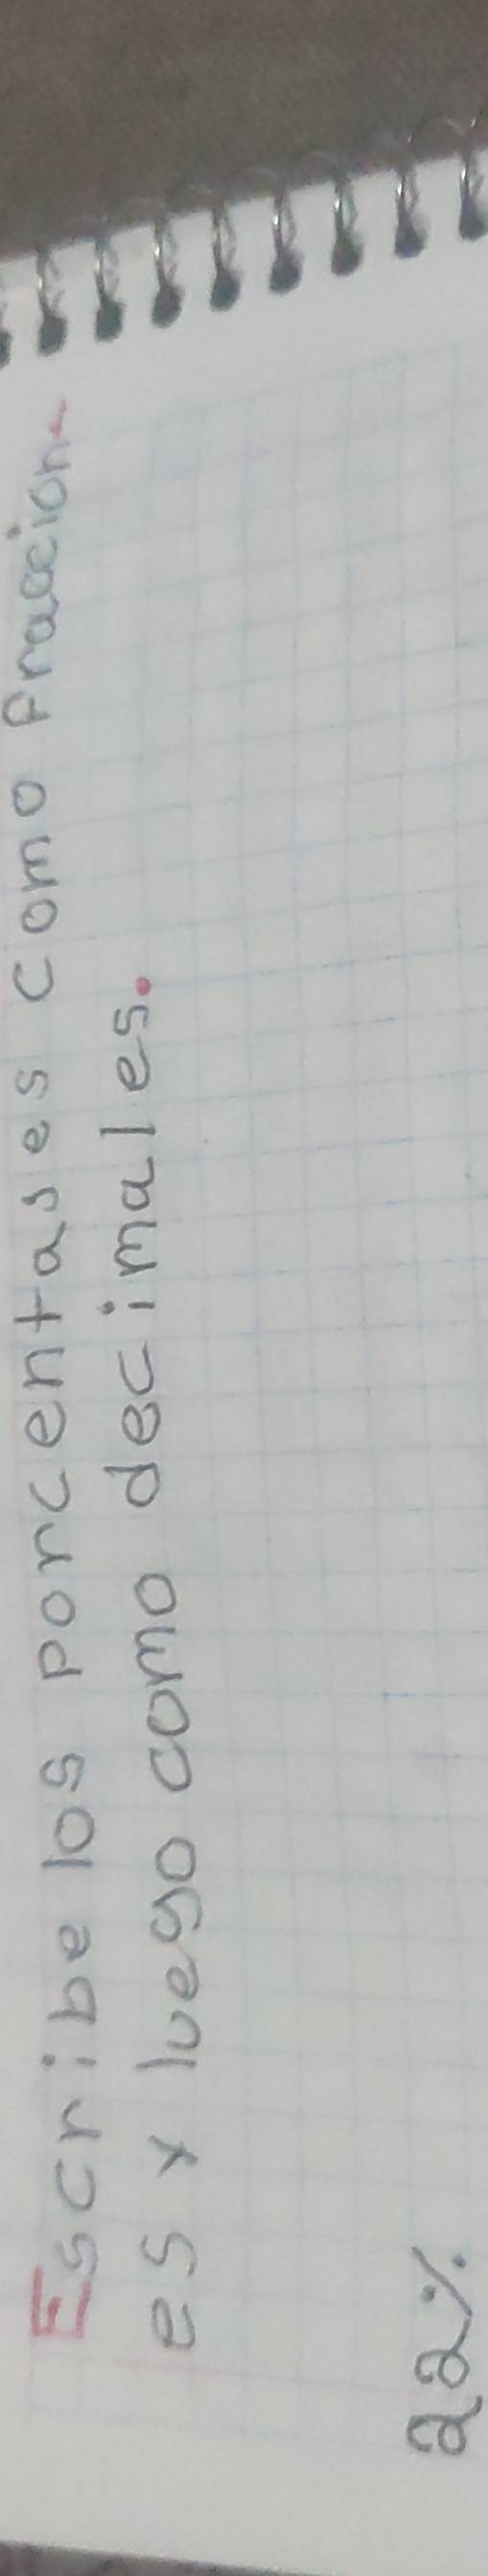 Escribe los porcentajes como fraccion-
es y luego como decimales.
22%